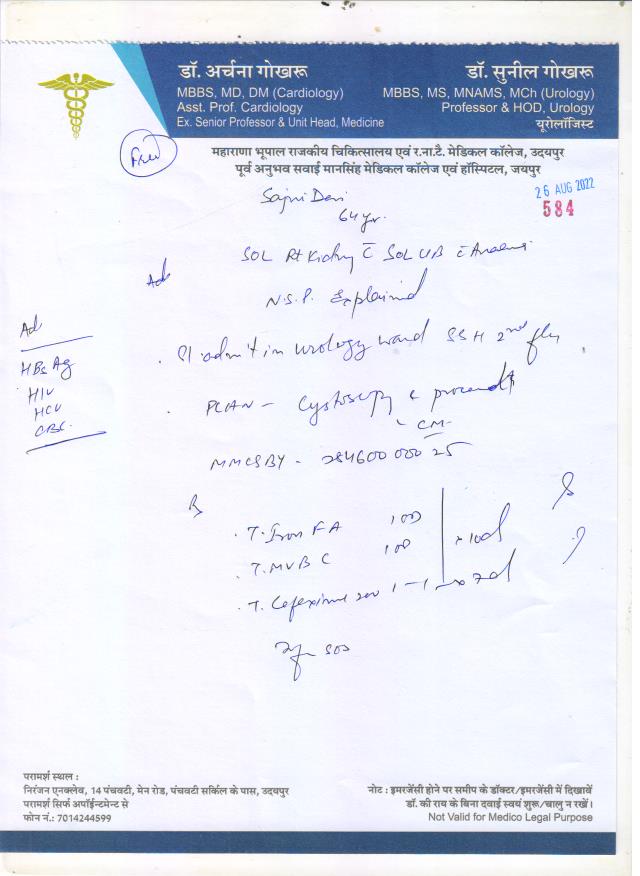 डॉ. अर्चना गोखरू
MBBS, MD, DM (Cardiology)
Asst. Prof. Cardiology
Ex. Senior Professor & Unit Head, Medicine
डॉ. सुनील गोखरू
MBBS, MS, MNAMS, MCh (Urology)
Professor & HOD, Urology
यूरोलॉजिस्ट
महाराणा भूपाल राजकीय चिकित्सालय एवं र.ना.टै. मेडिकल कॉलेज, उदयपुर
पूर्व अनुभव सवाई मानसिंह मेडिकल कॉलेज एवं हॉस्पिटल, जयपुर
Free
26 AUG 2022
584
Devi
64 yr.
SOL Rt Kidney c̄ SOL UB c̄
N.S.P. Explained
Pl admit in urology ward SSH 2nd
Ad
HBsAg
HIV
HCV
CBC
PLAN - Cystoscopy &
CM
MMCSBY -
T. Iron FA 1 OD
T. MVBC 1 OD
x 10d
T. Cefexime 200 1-1 x 7d
SOS
परामर्श स्थल :
निरंजन एनक्लेव, 14 पंचवटी, मेन रोड, पंचवटी सर्किल के पास, उदयपुर
परामर्श सिर्फ अपॉईन्टमेन्ट से
फोन नं.: 7014244599
नोट : इमरजेंसी होने पर समीप के डॉक्टर/इमरजेंसी में दिखावें
डॉ. की राय के बिना दवाई स्वयं शुरू/चालु न रखें।
Not Valid for Medico Legal Purpose